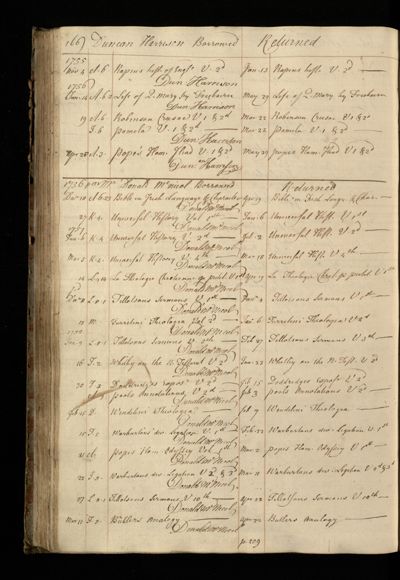 166 Duncan Herrison Borrowed Returned
1755
Nov 4 A.6 Rapins hist. of Engl. V. 2d Jan 13 Rapins hist. V. 2d
Dun Harrison
1756
A.6.2 Life of Q. Mary by Freebairn May 29 Life of Q. Mary by Freebairn
Dun Harrison
19 Robinson Crusoe V. 1 & 2d Mar 22 Robinson Crusoe V. 1 & 2d
F.6 Pamela V. 1 & 2d Mar 22 Pamela V. 1 & 2d
Dun Harrison
Apr 20 Popes Hom. Iliad V. 1 & 2d May 29 popes Hom. Iliad V. 1 & 2d
Dun Harrison
1756 Mr Donald McNicol Borrowed Returned
Bible in Irish Language & Character Bible in Irish Lang. & Char.
Donald McNicol
27 K.4 Universal History Vol. 1st Jan 6 Universal Hist. V. 1st
Donald McNicol
Jan 6 K.4 Universal History V. 2d Universal Hist. V. 2d
Donald McNicol
K.4 Universal History V. 4th Mar 18 Universal Hist. V. 4th
Donald McNicol
La Theologie La Theologie
Donald McNicol
L.1 Tillotsons Sermons V. 1st Tillotsons Sermons V. 1st
Donald McNicol
Turretini Theologia Vol 2d Jan 6 Turretini Theologia V. 2d
Donald McNicol
Tillotsons Sermons V. 5th Feb 27 Tillotsons Sermons V. 5th
Donald McNicol
16 F.2 Whitby on the N. Testam. V. 2d Jan 23 Whitby on the N. Test. V. 2d
Donald McNicol
30 F.2 Doddridges expos. V. 2d Feb 15 Doddridges expos. V. 2d
pools Annotations V. 2d Feb 3 pools Annotations V. 2d
Donald McNicol
Feb Wendelini Theologia Feb 9 Wendelini Theologia
Donald McNicol
Warburtons div. Legation V. 1st Feb 22 Warburtons div. Legation V. 1st
Donald McNicol
popes Hom. Odyssey Vol. 1st Mar 2 popes Hom. Odyssey V. 1st
Donald McNicol
22 Warburtons div. Legation V. 2 & 3d Mar 11 Warburtons div. Legation V. 2d & 3d
Donald McNicol
27 L.1 Tillotsons Sermons V. 10th Apr 22 Tillotsons Sermons V. 10th
Donald McNicol
Mar 11 F.2 Butlers Analogy Apr 22 Butlers Analogy
Donald McNicol
p. 209